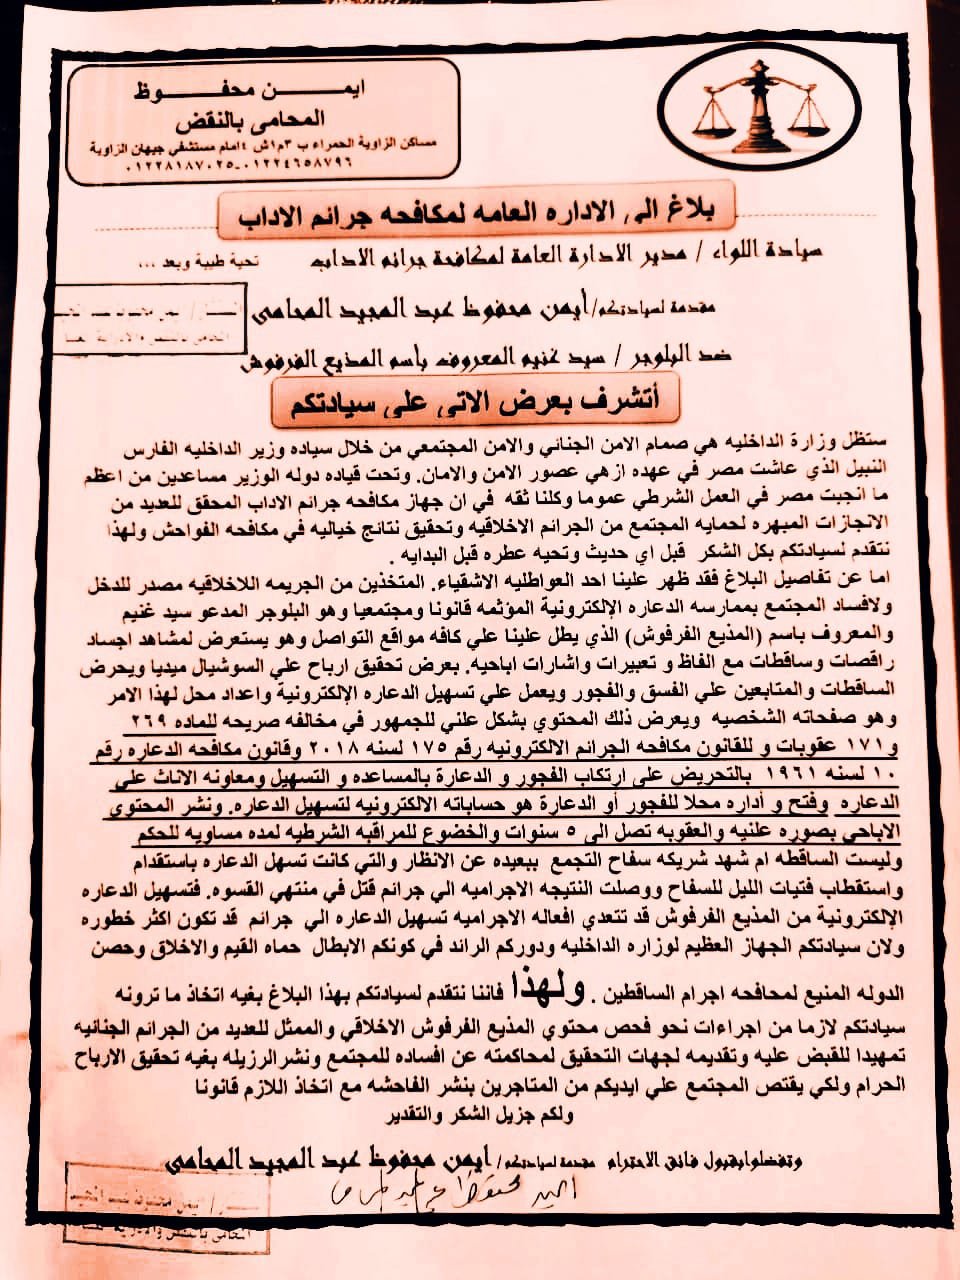 ايمـــن محفـــوظ
المحامى بالنقض
مساكن الزاوية الحمراء ب ٣م١ش ٤امام مستشفي جيهان الزاوية
٠١٢٢٨١٨٧٠٢٥-٠١٢٢٤٦٥٨٧٩٦
بلاغ الى الاداره العامه لمكافحه جرائم الاداب
سيادة اللواء / مدير الادارة العامة لمكافحة جرائم الاداب تحية طيبة وبعد ...
مقدمة لسيادتكم/أيمن محفوظ عبد المجيد المحامى
ضد البلوجر / سيد غنيم المعروف بأسم المذيع الفرفوش
أتشرف بعرض الاتى على سيادتكم
ستظل وزارة الداخليه هي صمام الامن الجنائي والامن المجتمعي من خلال سياده وزير الداخليه الفارس
النبيل الذي عاشت مصر في عهده ازهي عصور الامن والامان. وتحت قياده دوله الوزير مساعدين من اعظم
ما انجبت مصر في العمل الشرطي عموما وكلنا ثقه في ان جهاز مكافحه جرائم الاداب المحقق للعديد من
الانجازات المبهره لحمايه المجتمع من الجرائم الاخلاقيه وتحقيق نتائج خياليه في مكافحه الفواحش ولهذا
نتقدم لسيادتكم بكل الشكر قبل اي حديث وتحيه عطره قبل البدايه .
اما عن تفاصيل البلاغ فقد ظهر علينا احد العواطليه الاشقياء. المتخذين من الجريمه اللاخلاقيه مصدر للدخل
ولافساد المجتمع بممارسه الدعاره الإلكترونية المؤثمه قانونا ومجتمعيا وهو البلوجر المدعو سيد غنيم
والمعروف باسم (المذيع الفرفوش) الذي يطل علينا علي كافه مواقع التواصل وهو يستعرض لمشاهد اجساد
راقصات وساقطات مع الفاظ و تعبيرات واشارات اباحيه. بعرض تحقيق ارباح علي السوشيال ميديا ويحرض
الساقطات والمتابعين علي الفسق والفجور ويعمل علي تسهيل الدعاره الإلكترونية واعداد محل لهذا الامر
وهو صفحاته الشخصيه ويعرض ذلك المحتوي بشكل علني للجمهور في مخالفه صريحه للماده ٢٦٩
و١٧١ عقوبات و للقانون مكافحه الجرائم الالكترونيه رقم ١٧٥ لسنه ٢٠١٨ وقانون مكافحه الدعاره رقم
١٠ لسنه ١٩٦١ بالتحريض على ارتكاب الفجور و الدعارة بالمساعده و التسهيل ومعاونه الاناث على
الدعاره وفتح و أداره محلا للفجور أو الدعارة هو حساباته الالكترونيه لتسهيل الدعاره. ونشر المحتوي
الاباحي بصوره علنيه والعقوبه تصل الى ٥ سنوات والخضوع للمراقبه الشرطيه لمده مساويه للحكم
وليست الساقطه ام شهد شريكه سفاح التجمع ببعيده عن الانظار والتي كانت تسهل الدعاره باستقدام
واستقطاب فتيات الليل للسفاح ووصلت النتيجه الاجراميه الي جرائم قتل في منتهي القسوه. فتسهيل الدعاره
الإلكترونية من المذيع الفرفوش قد تتعدي افعاله الاجراميه تسهيل الدعاره الي جرائم قد تكون اكثر خطوره
ولان سيادتكم الجهاز العظيم لوزاره الداخليه ودوركم الرائد في كونكم الابطال حماه القيم والاخلاق وحصن
الدوله المنيع لمحافحه اجرام الساقطين . ولهذا فاننا نتقدم لسيادتكم بهذا البلاغ بغيه اتخاذ ما ترونه
سيادتكم لازما من اجراءات نحو فحص محتوي المذيع الفرفوش الاخلاقي والممثل للعديد من الجرائم الجنائيه
تمهيدا للقبض عليه وتقديمه لجهات التحقيق لمحاكمته عن افساده للمجتمع ونشرالرزيله بغيه تحقيق الارباح
الحرام ولكي يقتص المجتمع علي ايديكم من المتاجرين بنشر الفاحشه مع اتخاذ اللازم قانونا
ولكم جزيل الشكر والتقدير
وتفضلوا بقبول فائق الاحترام مقدمة لسيادتكم/ أيمن محفوظ عبد المجيد المحامى